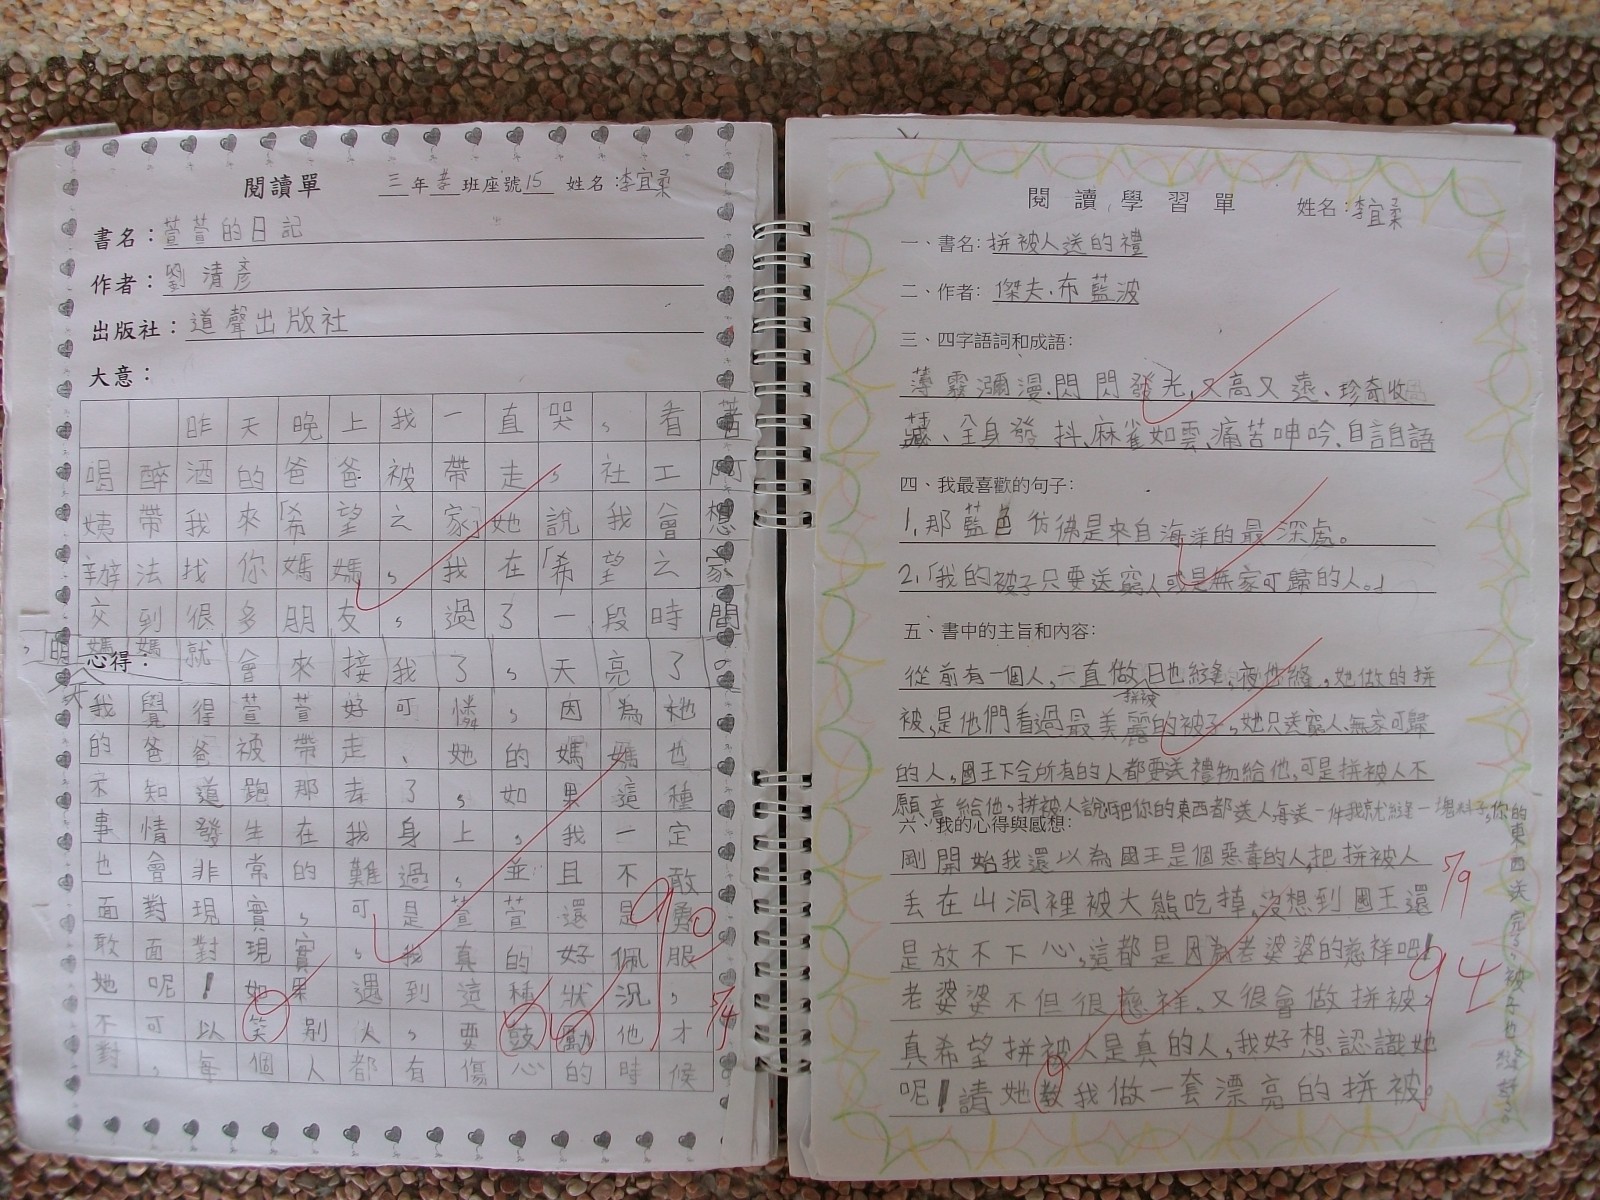 閱讀單 三年孝班座號15 姓名:李宜柔
書名:萱萱的日記
作者:劉清彥
出版社:道聲出版社
大意:
昨天晚上我一直哭,看著
喝醉酒的爸爸被帶走,社工阿
姨帶我來「希望之家」她說我會想
辦法找你媽媽,我在「希望之家
交到很多朋友,過了一段時間
,明天媽媽就會來接我了,天亮了。
心得:
我覺得萱萱好可憐,因為她
的爸爸被帶走、她的媽媽也
不知道跑那去了,如果這種
事情發生在我身上,我一定
也會非常的難過,並且不敢
面對現實,可是萱萱還是勇
敢面對現實,我真的好佩服
她呢!如果遇到這種狀況,
不可以笑別人,要鼓勵他才
對,每個人都有傷心的時候
90
5/4
閱讀學習單 姓名:李宜柔
一、書名:拼被人送的禮
二、作者:傑夫.布藍波
三、四字語詞和成語:
薄霧瀰漫、閃閃發光、又高又遠、珍奇收
藏、全身發抖、麻雀如雲、痛苦呻吟、自言自語
四、我最喜歡的句子:
1.那藍色彷彿是來自海洋的最深處。
2.「我的被子只要送窮人或是無家可歸的人。」
五、書中的主旨和內容:
從前有一個人,一直做拼被日也縫,夜也縫,她做的拼
被,是他們看過最美麗的被子,她只送窮人、無家可歸
的人,國王下令所有的人都要送禮物給他,可是拼被人不
願意給他,拼被人說:「把你的東西都送人每送一件我就縫一塊料子,你的
東西送完了,被子也發話了。
六、我的心得與感想:
剛開始我還以為國王是個惡毒的人,把拼被人
丟在山洞裡被大熊吃掉,沒想到國王還
是放不下心,這都是因為老婆婆的慈祥吧!
老婆婆不但很慈祥,又很會做拼被,
真希望拼被人是真的人,我好想認識她
呢!請她教我做一套漂亮的拼被。
5/9
94